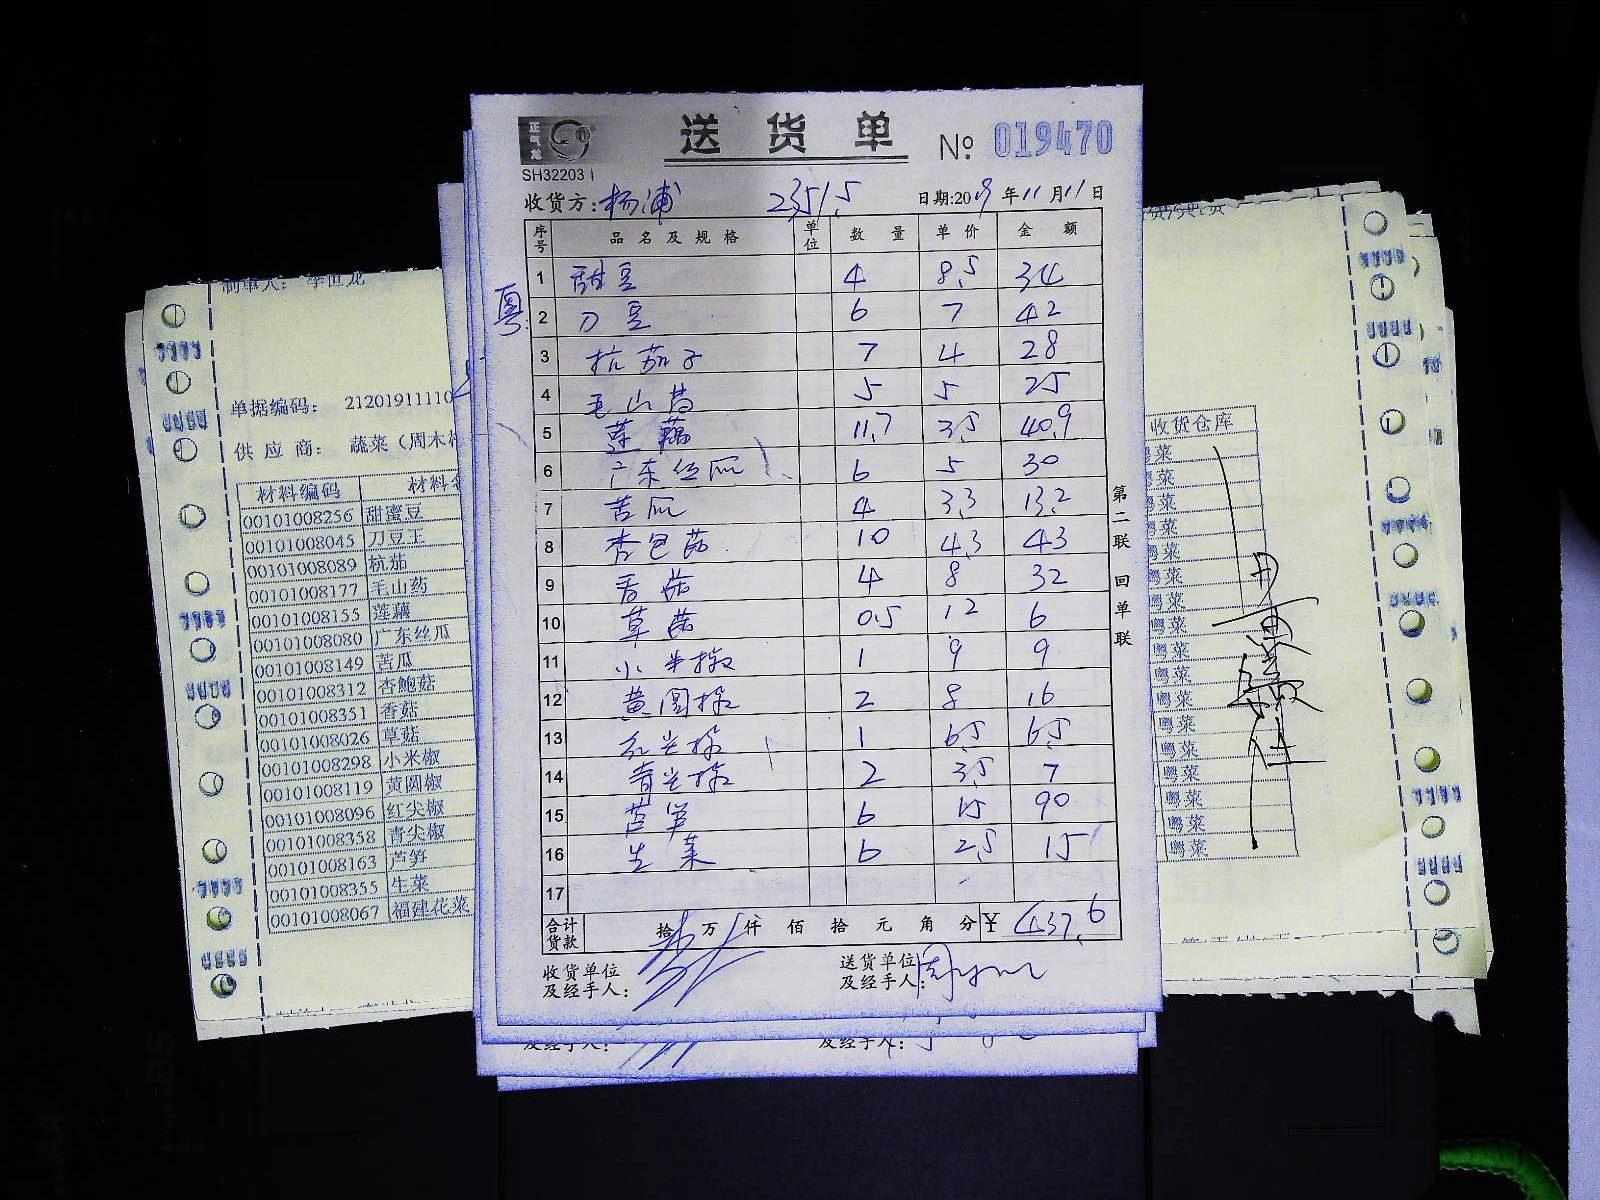 正气龙
送货单
№ 019470
SH32203
收货方: 杨浦 2351.5 日期:2019年11月11日
序号 品名及规格 单位 数量 单价 金额
粤
1 甜豆 4 8.5 34
2 刀豆 6 7 42
3 杭茄子 7 4 28
4 毛山药 5 5 25
5 莲藕 11.7 3.5 40.9
6 广东丝瓜 6 5 30
7 苦瓜 4 3.3 13.2
8 杏包菇 10 4.3 43
9 香菇 4 8 32
10 草菇 0.5 12 6
11 小米椒 1 9 9
12 黄圆椒 2 8 16
13 红尖椒 1 6.5 6.5
14 青尖椒 2 3.5 7
15 芦笋 6 15 90
16 生菜 6 2.5 15
17
合计货款 拾 万 仟 佰 拾 元 角 分 ¥ 437.6
收货单位及经手人:
送货单位及经手人:
第二联 回单联
及经手人:
及经手人:
制单人: 李世龙
单据编码: 21201911110
供应商: 蔬菜（周木
材料编码 材料名
00101008256 甜蜜豆
00101008045 刀豆王
00101008089 杭茄
00101008177 毛山药
00101008155 莲藕
00101008080 广东丝瓜
00101008149 苦瓜
00101008312 杏鲍菇
00101008351 香菇
00101008026 草菇
00101008298 小米椒
00101008119 黄圆椒
00101008096 红尖椒
00101008358 青尖椒
00101008163 芦笋
00101008355 生菜
00101008067 福建花菜
收货仓库
菜
菜
菜
菜
菜
粤菜
粤菜
粤菜
粤菜
粤菜
粤菜
粤菜
粤菜
粤菜
粤菜
粤菜
粤菜